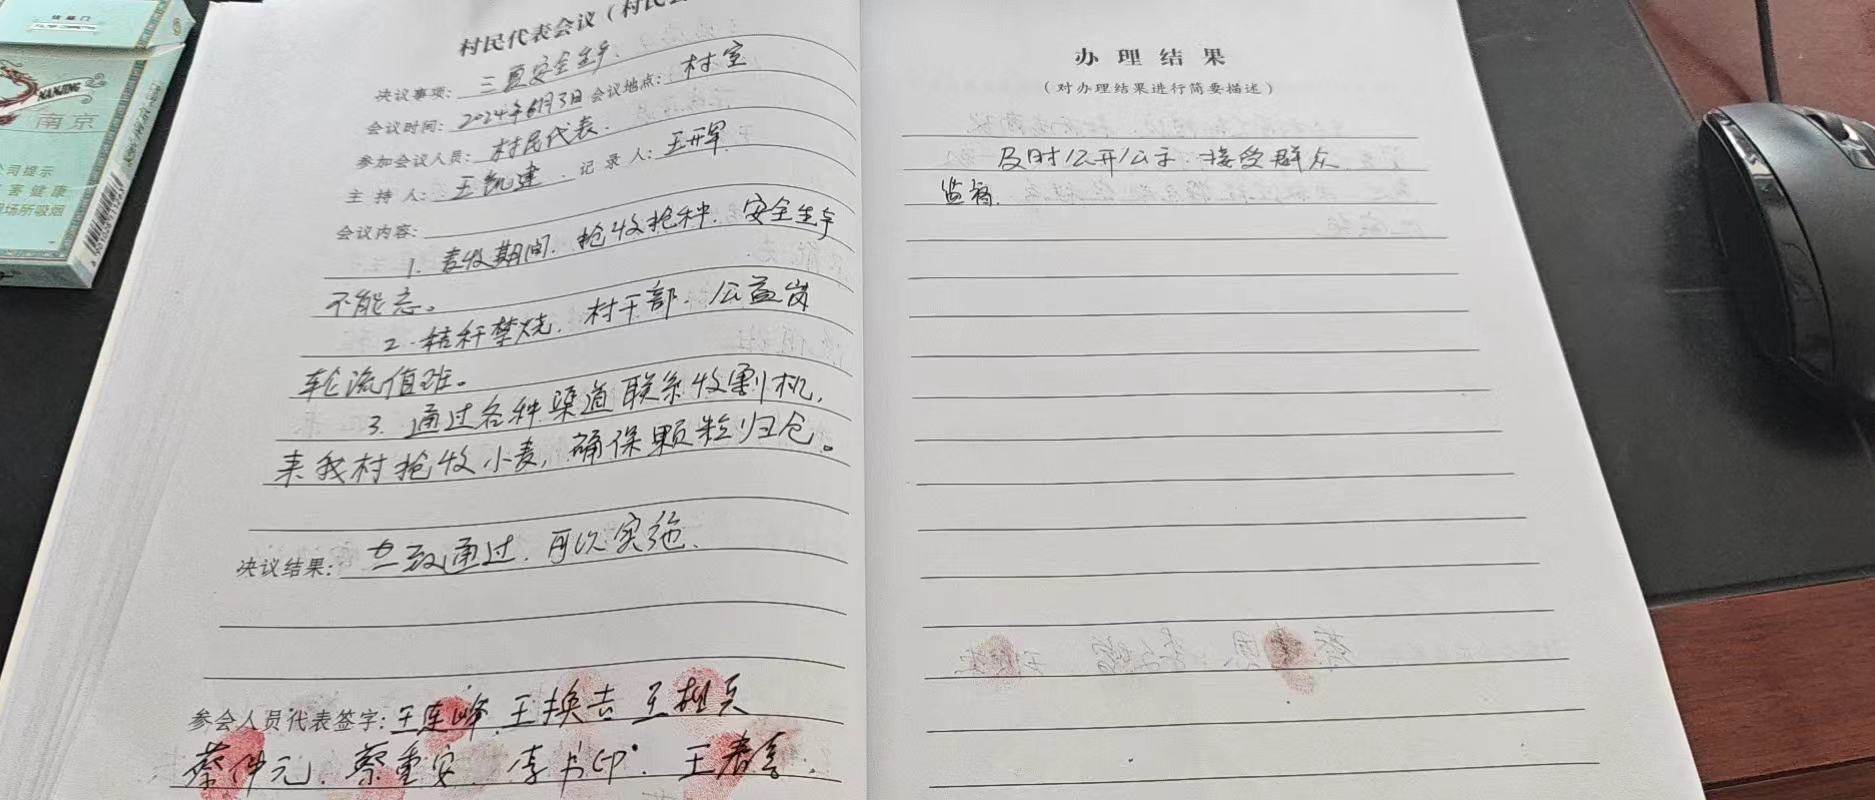 村民代表会议（村民会
决议事项：三夏安全生产.
会议时间：2024年6月3日 会议地点：村室
参加会议人员：村民代表.
主 持 人：王凯建. 记 录 人：王开军
会议内容：
1. 麦收期间. 抢收抢种. 安全生产
不能忘。
2. 秸秆禁烧. 村干部. 公益岗
轮流值班。
3. 通过各种渠道联系收割机,
来我村抢收小麦, 确保颗粒归仓。
决议结果：一致通过. 可以实施.
参会人员代表签字：王连峰. 王换吉
蔡仲元. 蔡重安. 李书印. 王春喜.
办理结果
（对办理结果进行简要描述）
及时公开公示. 接受群众
监督.
NANJING
南京
司提示
害健康
场所吸烟